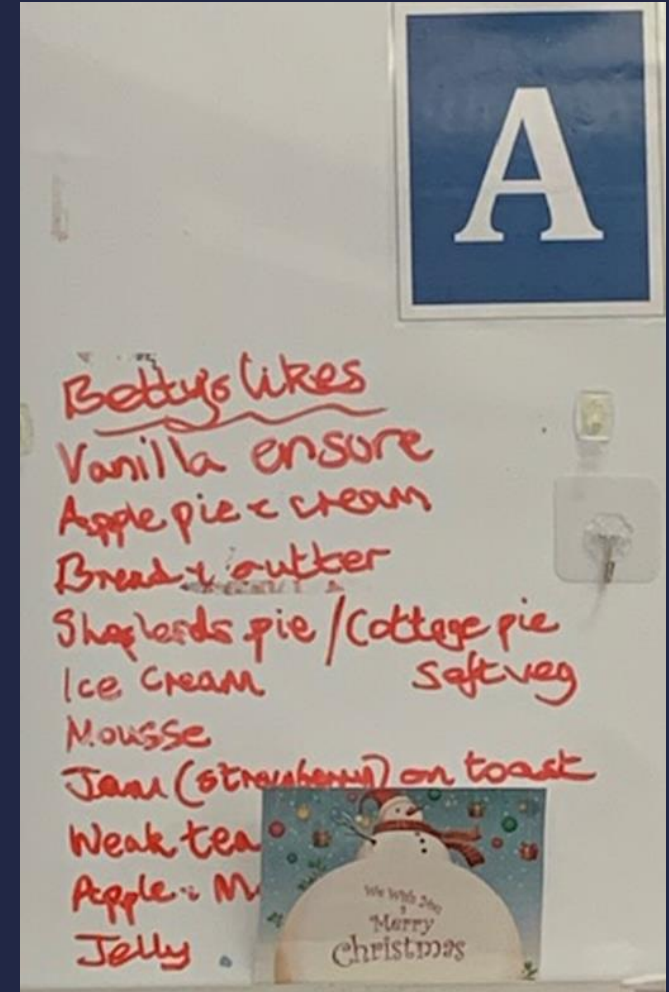 A
Betty's likes
Vanilla ensure
Apple pie & cream
Bread & butter
Shepherds pie / Cottage pie
Ice cream soft veg
Mousse
Jam (strawberry) on toast
Weak tea
Apple
Jelly
We Wish You
a
Merry
Christmas